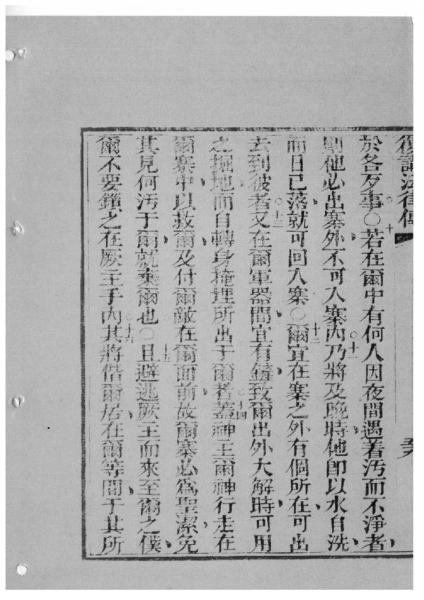 復講法律傳
於各歹事○十若在爾中有何人因夜間遇着污而不淨者
則他必出寨外不可入寨內十一乃將及晚時他即以水自洗
而日已落就可回入寨○十二爾宜在寨之外有個所在可出
去到彼者十三又在爾軍器間宜有鏟致爾出外大解時可用
之掘地而自轉身掩埋所出于爾者十四蓋神主爾神行走在
爾寨中以救爾及付爾敵在爾面前故爾寨必為聖潔免
其見何污于爾就棄爾也○十五且避逃厥主而來至爾之僕
爾不要鎖之在厥主手內十六其將偕爾居在爾等間于其所